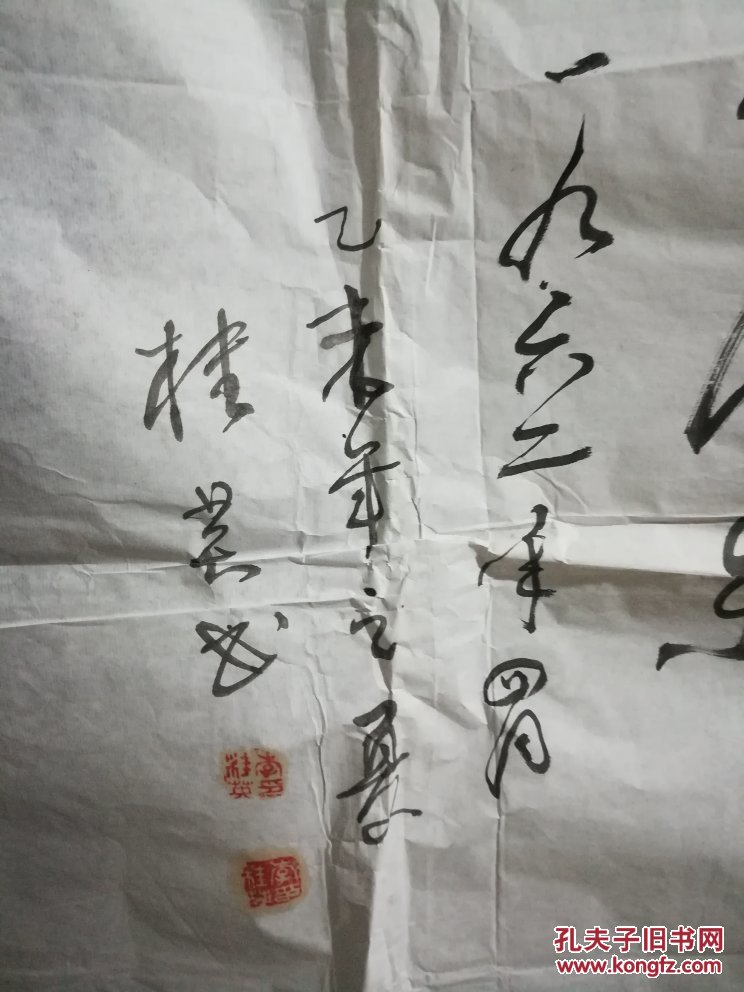 一九六二年四月
乙未年之夏
桂英书
李印
桂英
孔夫子旧书网
www.kongfz.com